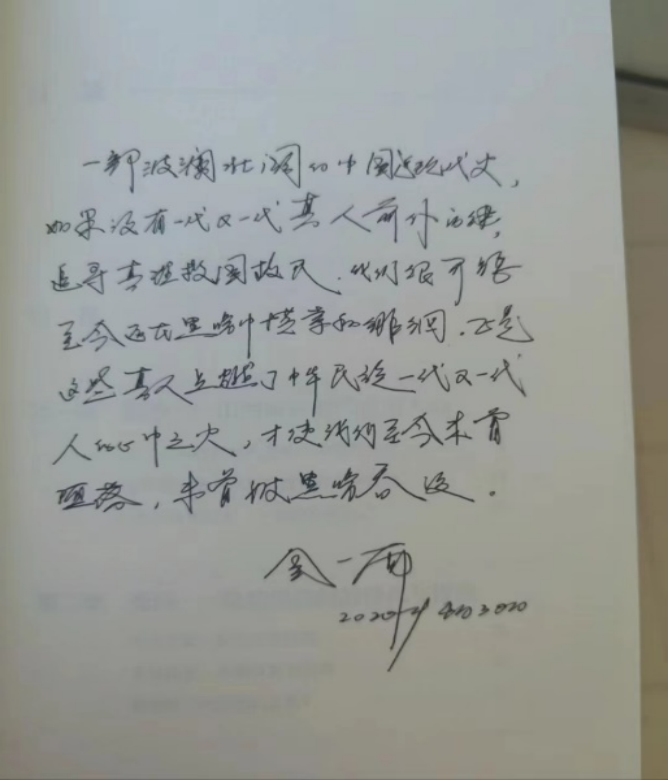 一部波澜壮阔的中国近现代史,
如果没有一代又一代真人前仆后继,
追寻真理救国救民.我们很可能
至今还在黑暗中摸索和
.正是
这些真人点燃了中华民族一代又一代
人的心中之火,才使我们至今未曾
堕落,未曾被黑暗吞没。
金一南
2020